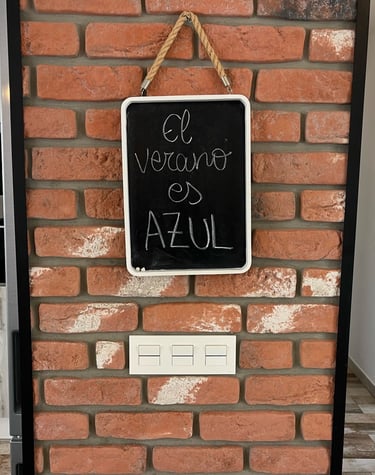 El
verano
es
AZUL